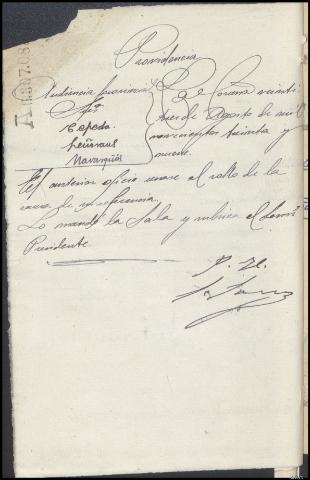 Providencia
Audiencia provincial
Srs
Cepeda.
Navarquis
La Coruña veinti
tres de Agosto de mil
novecientos treinta y
nueve.
El anterior oficio unase al rollo de la
causa de su referencia.
Lo mandó la Sala y rubrica el Señor
Presidente